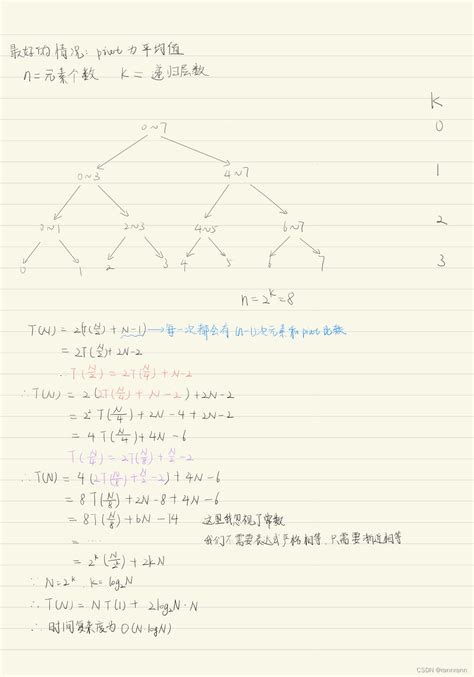 最好的情况: pivot为平均值
n=元素个数 k = 递归层数
K
0~7 0
0~3 4~7 1
0~1 2~3 4~5 6~7 2
0 1 2 3 4 5 6 7 3
n=2^k=8
T(N) = 2(T(N/2) + N-1) → 每一次都会有(n-1)次元素和pivot比较
= 2T(N/2)+2N-2
∵ T(N/2) = 2T(N/4) + N-2
∴ T(N) = 2(2T(N/4) + N-2) + 2N-2
= 2² T(N/4) + 2N-4+2N-2
= 4T(N/4) + 4N-6
T(N/4) = 2T(N/8) + N/2 -2
∴ T(N) = 4(2T(N/8) + N/2 -2) + 4N-6
= 8T(N/8) + 2N-8+4N-6
= 8T(N/8) + 6N-14 这里我忽视了常数
= ···· 我们不需要表达式严格相等,只需要渐近相等
= 2^k(N/2^k) + 2kN
∵ N=2^k, k=log₂N
∴ T(N) = NT(1) + 2log₂N·N
∴ 时间复杂度为 O(N·logN)
CSDN @rannrann